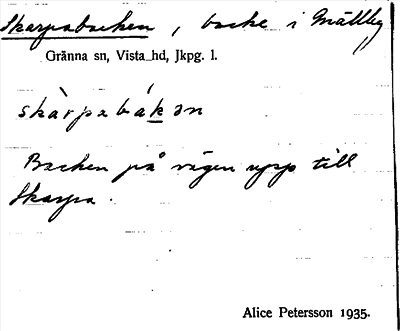 Skarpabacken, backe i Målby
Gränna sn, Vista hd, Jkpg. l.
skàrpabákən
Backen på vägen upp till
Skarpa.
Alice Petersson 1935.